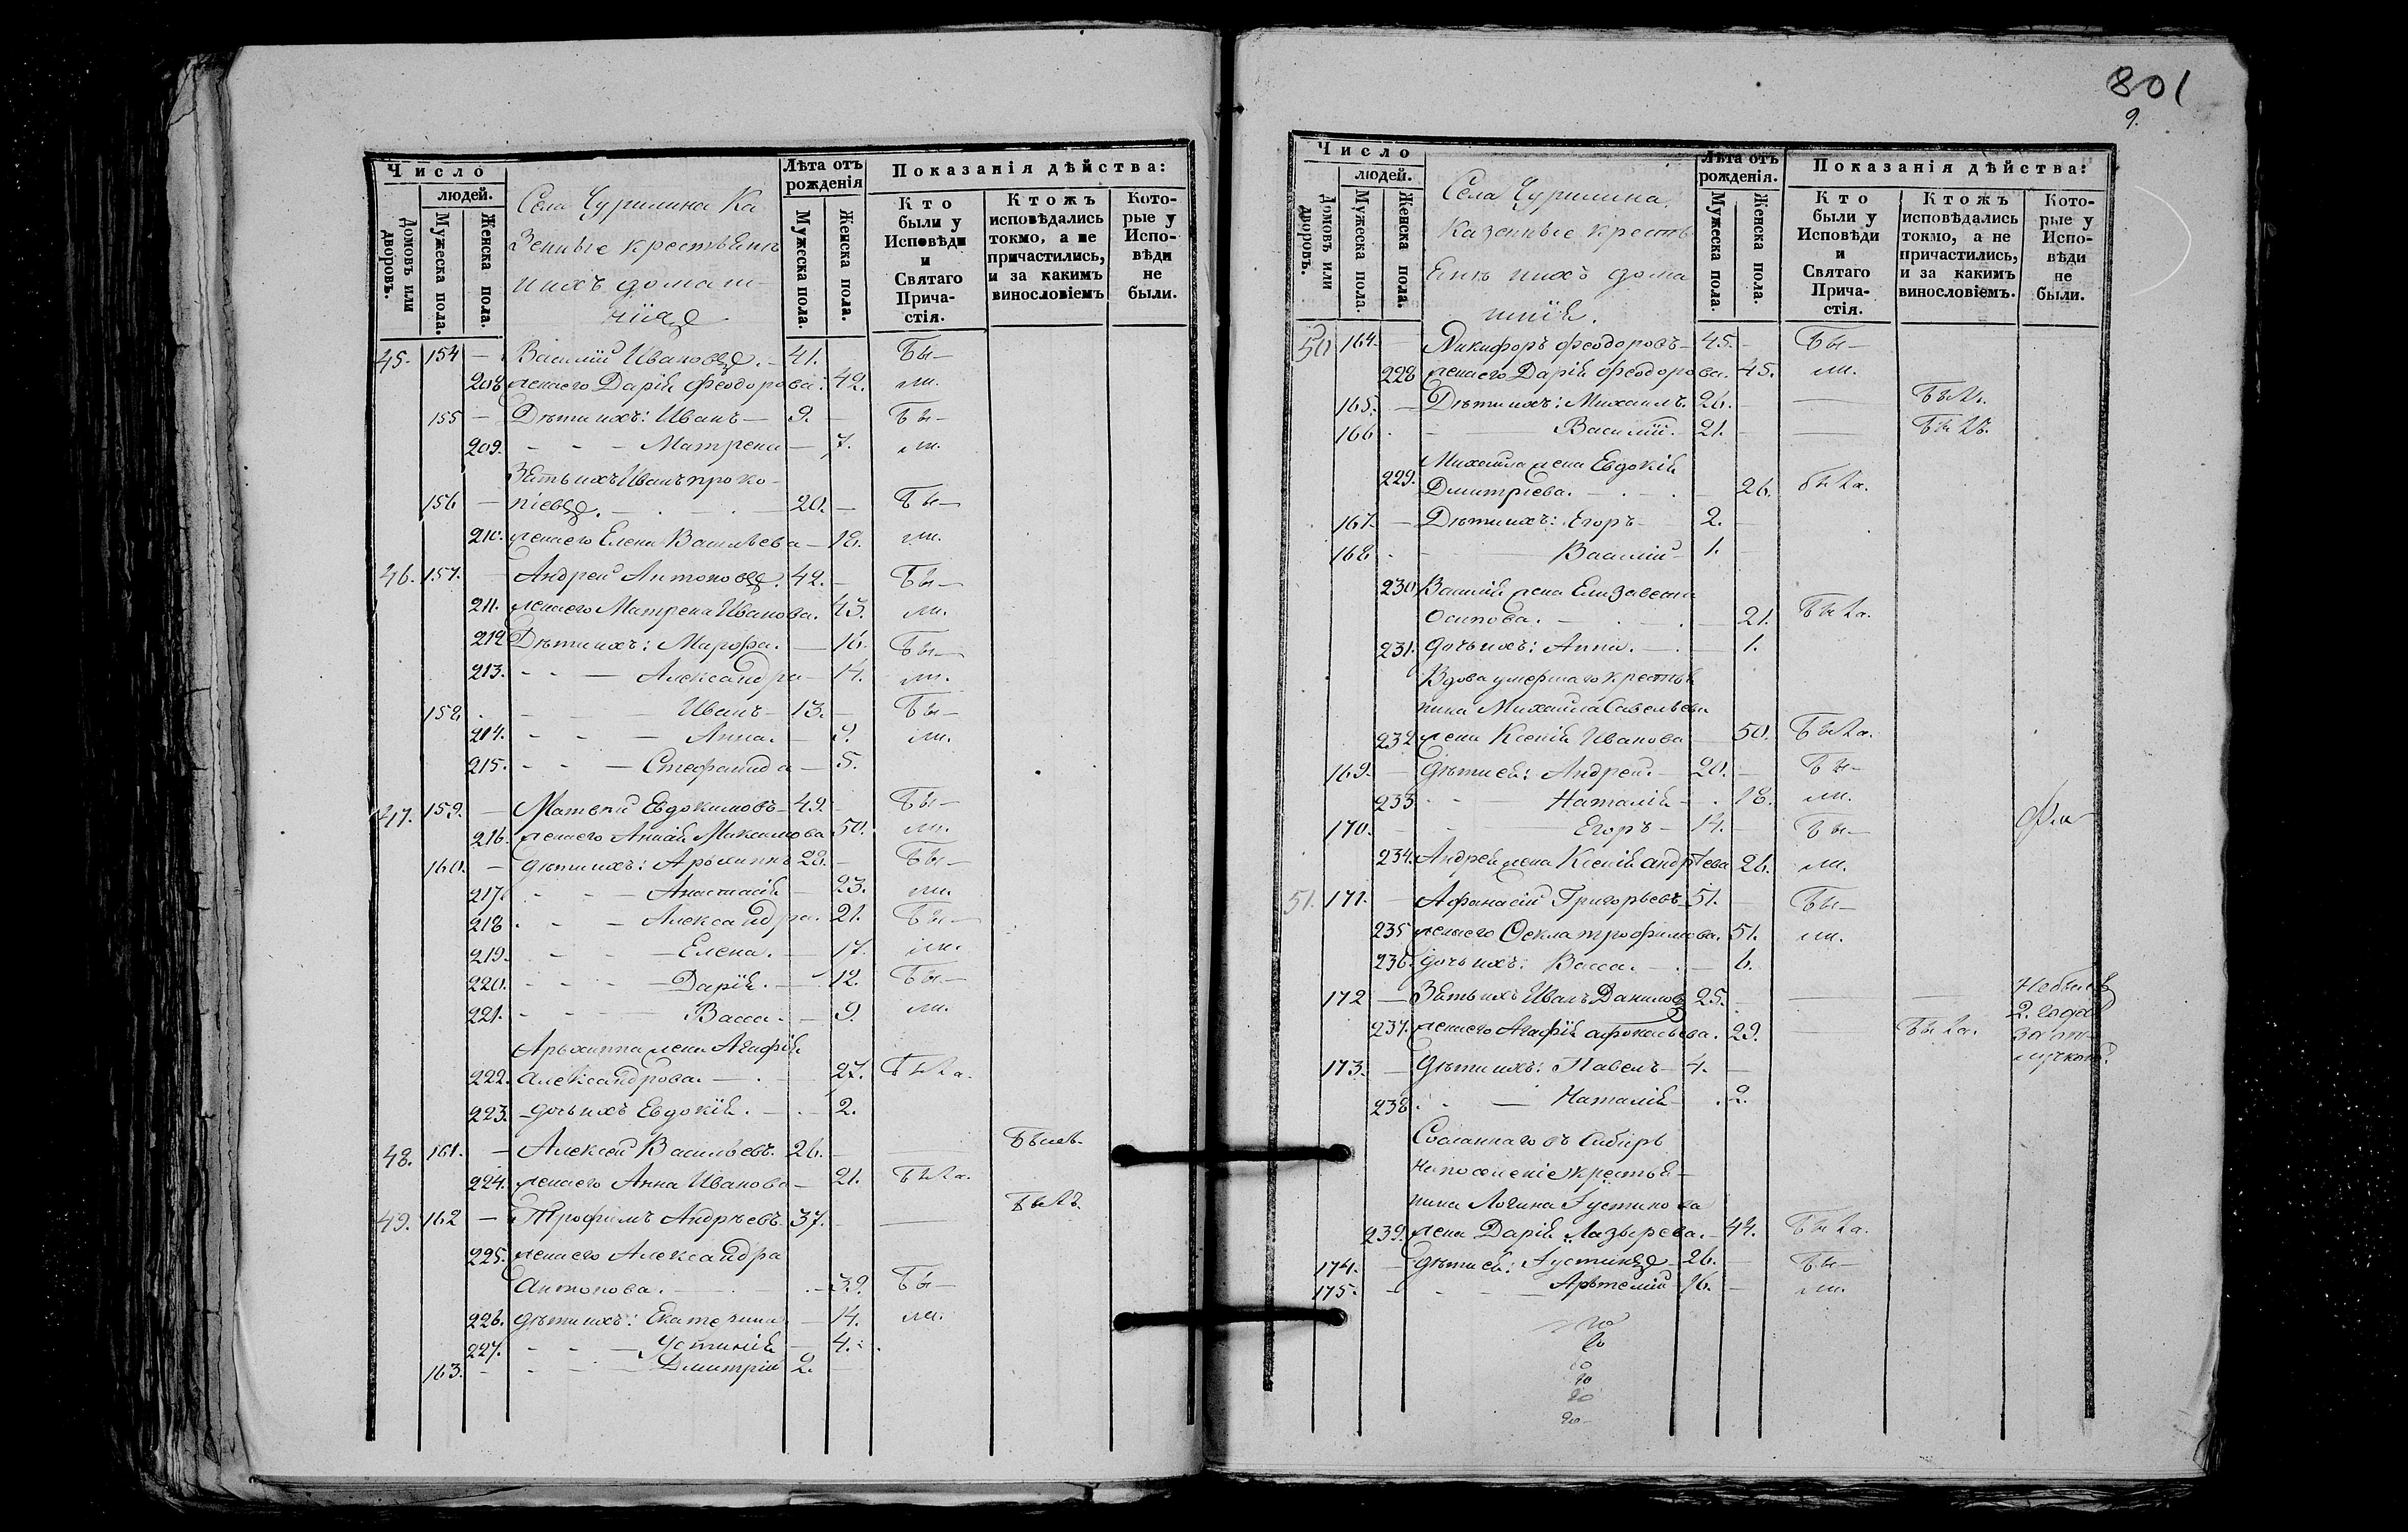 Число
людей.
Домовъ или дворовъ.
Мужеска пола.
Женска пола.
Села Чурилина Ка
зенные крестьяне
ихъ домаш-
ніе
Лѣта отъ рожденія
Мужеска пола.
Женска пола.
Показанія дѣйства:
Кто были у Исповѣди и Святаго Прича-стія.
Ктожъ исповѣдались токмо, а не причастились, и за какимъ винословіемъ
Кото-рые у Испо-вѣди не были.
45. 154 — Василій Ивановъ. — 41. Бы—
208 жена его Дарія Феодорова. 42. ли.
155 — Дѣти ихъ: Иванъ — 9. — Бы—
209. - - - Матрена — 7. ли.
Зять ихъ Иванъ Проко-
156 — піевъ. — 20. — Бы—
210. жена его Елена Васильева — 18. ли.
46. 157. — Андрей Антоновъ. 42. — Бы—
211. жена его Матрена Иванова. 43. ли.
212 Дѣти ихъ: Марфа. — 16. Бы—
213. - - — Александра — 14. ли.
158 - — Иванъ — 13. — Бы—
214. - - — Анна. — 9. ли.
215. - - — Стефанида — 5.
47. 159. — Матвѣй Евдокимовъ — 49. Бы—
216. жена его Анна Максимова 50. ли.
160. — дѣти ихъ: Архиппъ 28. — Бы—
217. - - — Анастасія — 23. ли.
218 - - — Александра. 21. Бы—
219. - - — Елена. — 17. ли.
220. - - — Дарія. — 12. Бы—
221. - - — Васса. — 9. ли.
Архиппа жена Агафія
222. Александрова. — 27. Была.
223. дочь ихъ Евдокія. — 2.
48. 161. — Алексей Васильевъ. 26. — Былъ.
224. жена его Анна Иванова — 21. Была.
49. 162 — Трофимъ Андреевъ. 37. — Былъ.
225. жена его Александра
Антонова. — 39. Бы—
226. дѣти ихъ: Екатерина — 14. ли.
227. - - — Устинія — 4.
163. - - — Дмитрій 2.
801
9.
Число
людей.
Домовъ или дворовъ.
Мужеска пола.
Женска пола.
Села Чурилина
казенные кресть
яне ихъ дома
шніе.
Лѣта отъ рожденія.
Мужеска пола.
Женска пола.
Показанія дѣйства:
Кто были у Исповѣди и Святаго Прича-стія.
Ктожъ исповѣдались токмо, а не причастились, и за какимъ винословіемъ.
Кото-рые у Испо-вѣди не были.
50 164. — Никифоръ Феодоровъ — 45. — Бы—
228 жена его Дарія Феодорова. 45. ли.
165. — Дѣти ихъ: Михаилъ. 26. — Былъ.
166 - — Василій. 21. — Былъ.
Михаила жена Евдокія
229. Дмитріева. — 26. была.
167. — Дѣти ихъ: Егоръ — 2. —
168 - — Василій — 1. —
230 Василія жена Елизавета
Осипова. — 21. Была.
231. дочь ихъ: Анна. — 1.
Вдова умершаго крестья
нина Михаила Савельева
232 жена Ксенія Иванова 50. Была.
169. — дѣти ея: Андрей — 20. — Бы—
233 - - — Наталія — 18. ли.
170. - — Егоръ — 14. — Бы—
234. Андрея жена Ксенія Андреева 26. ли.
51. 171. — Афанасій Григорьевъ 51. — Бы—
235 жена его Фекла Трофимова. 51. ли.
236. дочь ихъ: Васса. — 6.
172 — Зять ихъ Иванъ Данилов 25. — Небылъ
2. года
237. жена его Агафія Афонасьева. 29. — Была. за от-
лучкой.
173. — дѣти ихъ: Павелъ — 4. —
238. - — Наталія — 2.
Сосланнаго въ Сибирь
на поселеніе крестья-
нина Логина Густинова
239. жена Дарія Лазырева. — 44. Была.
174. — дѣти ея: Густинъ — 26. — Бы—
175. - — Артемій 16. — ли.